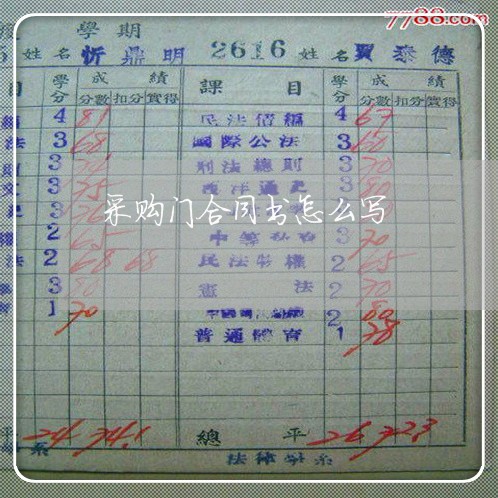 7788.com
學期
姓名 忻鼎明 2616 姓名 賈泰德
目 學分 成績 課目 學分 成績
分數 扣分 實得 分數 扣分 實得
4 81 民法債編 4 67
法 3 68 國際公法 3 60
3 刑法總則 3 70
3 75 西洋通史 3 80
3 3
采购门合同书怎么写
2 65 3 70
法 2 68 68 民法物權 2 65
3 80 憲法 2 70
1 70 2 80
普通體育 1 78
平 24 74.1 總平 26 72.3
系 法律學系